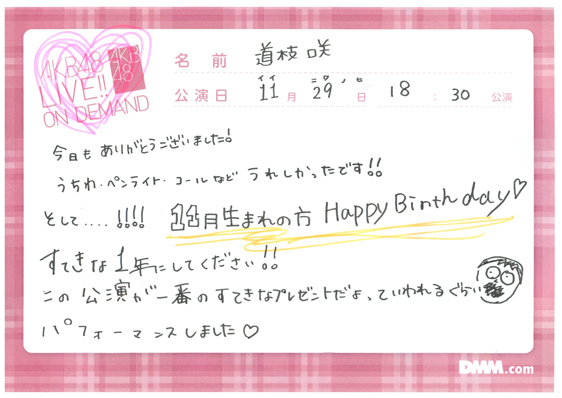 AKB48
LIVE!!
ON DEMAND
AKB
48
名前 道枝咲
イイ ニクノヒ
公演日 11月29日 18:30 公演
今日も ありがとうございました!
うちわ・ペンライト・コールなど うれしかったです!!
そして.... !!!! 11月生まれの方 Happy Birthday♡
すてきな1年にしてください!!
この公演が一番のすてきなプレゼントだよ、っていわれるぐらい
パフォーマンスしました♡
DMM.com